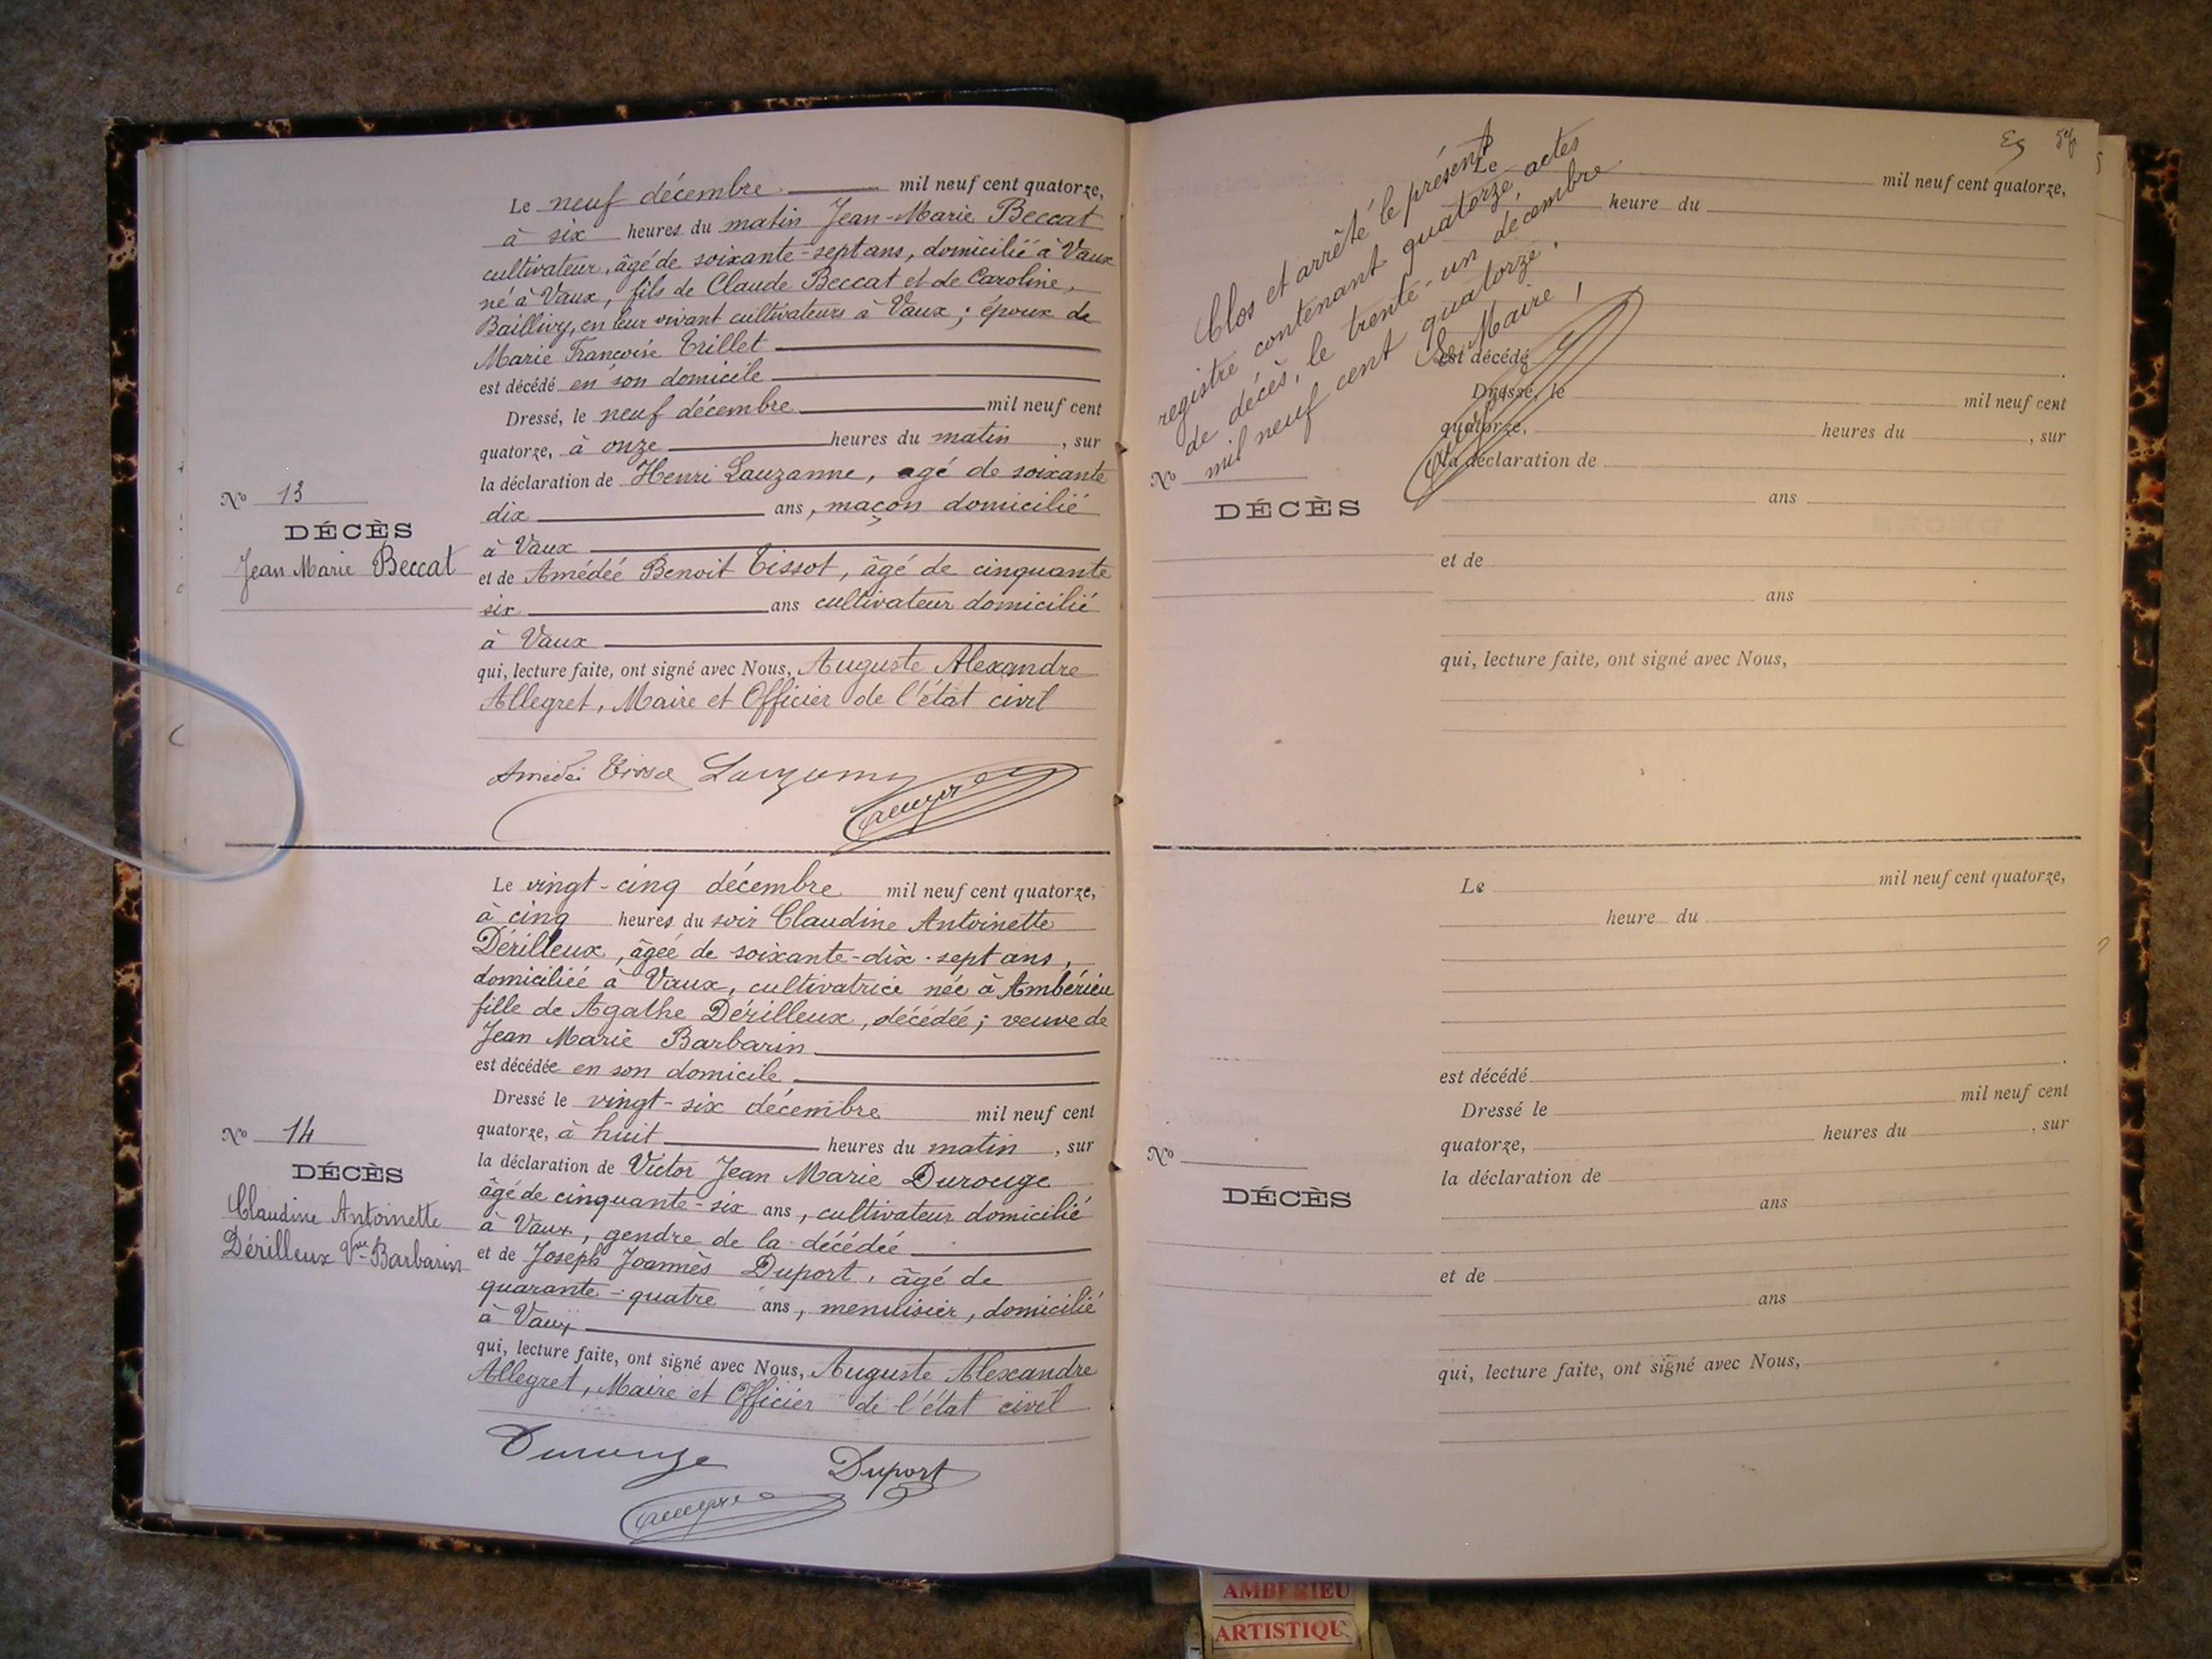 Le neuf décembre mil neuf cent quatorze,
à six heures du matin Jean-Marie Beccat
cultivateur, âgé de soixante-sept ans, domicilié à Vaux
né à Vaux, fils de Claude Beccat et de Caroline,
Baillivy, en leur vivant cultivateurs à Vaux ; époux de
Marie Francoise Trillet
est décédé en son domicile
Dressé, le neuf décembre mil neuf cent
quatorze, à onze heures du matin, sur
la déclaration de Henri Lauzanne, agé de soixante
dix ans, maçon domicilié
à Vaux
et de Amédée Benoit Tissot, âgé de cinquante
six ans cultivateur domicilié
à Vaux
qui, lecture faite, ont signé avec Nous, Auguste Alexandre
Allegret, Maire et Officier de l'état civil
No 13
DÉCÈS
Jean Marie Beccat
Le vingt-cinq décembre mil neuf cent quatorze,
à cinq heures du soir Claudine Antoinette
Dérilleux, âgée de soixante-dix-sept ans,
domiciliée à Vaux, cultivatrice née à Ambérieu
fille de Agathe Dérilleux, décédée ; veuve de
Jean Marie Barbarin
est décédée en son domicile
Dressé le vingt-six décembre mil neuf cent
quatorze, à huit heures du matin, sur
la déclaration de Victor Jean Marie Durouge
âgé de cinquante-six ans, cultivateur domicilié
à Vaux, gendre de la décédée
et de Joseph Joannès Duport, âgé de
quarante-quatre ans, menuisier, domicilié
à Vaux
qui, lecture faite, ont signé avec Nous, Auguste Alexandre
Allegret, Maire et Officier de l'état civil
Durouge Duport
No 14
DÉCÈS
Claudine Antoinette
Dérilleux Vve Barbarin
Clos et arrêté le présent
registre contenant quatorze actes
de décès, le trente-un décembre
mil neuf cent quatorze.
Le Maire,
Le mil neuf cent quatorze,
heure du
est décédé
Dressé, le mil neuf cent
quatorze, heures du , sur
la déclaration de
ans
et de
ans
qui, lecture faite, ont signé avec Nous,
No
DÉCÈS
Le mil neuf cent quatorze,
heure du
est décédé
Dressé le mil neuf cent
quatorze, heures du , sur
la déclaration de
ans
et de
ans
qui, lecture faite, ont signé avec Nous,
No
DÉCÈS
AMBERIEU
ARTISTIQU